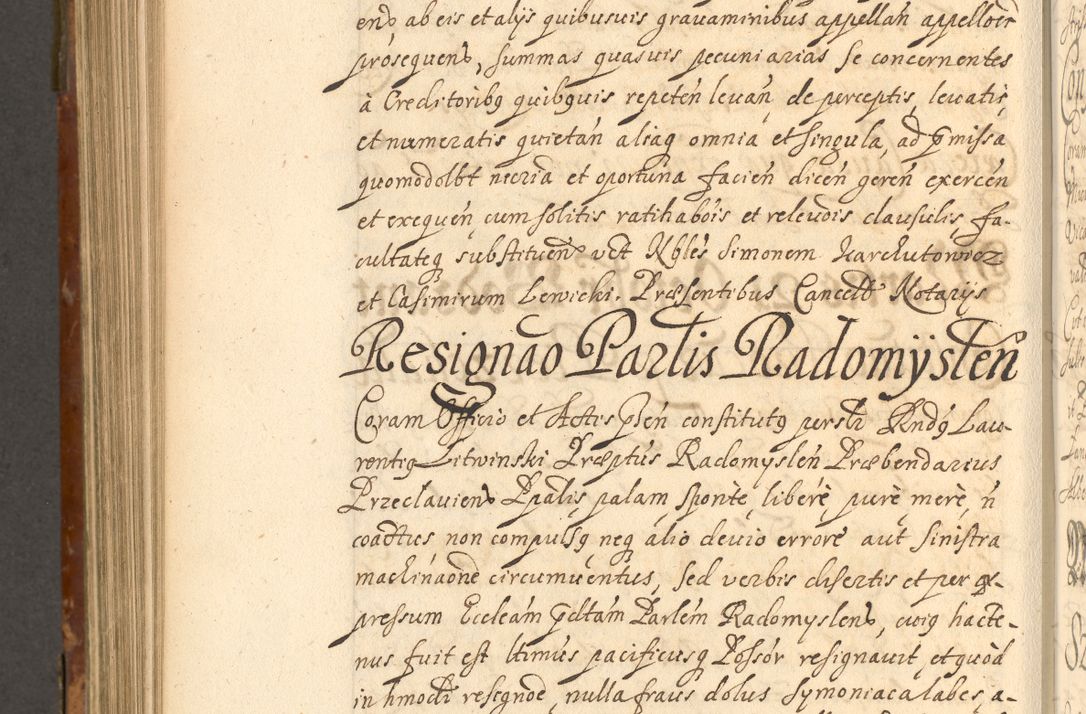 end, ab eis et alÿs quibusuis grauaminibus appellan̄ appelloēs
prosequend, summas quasuis pecuniarias se concernentes
à Creditoribq quibquis repeten̄ leuan̄ de perceptis, leuatis,
et numeratis quietan̄ aliaq omnia et singula, ad p̄missa
quomodolbt necr̄ia et oportuna facien̄ dicen̄ geren̄ exercen̄
et exequen̄ cum solitis ratihabōis et releuōis clausulis, fa-
cultateq substituen̄ vct Nbles Simonem Karchutowicz
et Casimirum Lewicki. Præsentibus Cancell Notarÿs
Resignāo Parlis Radomÿslen̄
Coram Officio et Actis p̄sen̄ constitutq persli Rndq Lau-
rentiq Litwinski Præptūs Radomyslen̄ Præbendarius
Przeclauiend Ppalis, palam sponte, liberè, purè, merè, n̄
coactus non compulsq neq alio deuio errore aut sinistra
machinaōne circumuentus, sed verbis disertis et per ex-
pressum Eccleam p̄dtam Parlem Radomyslend, cuiq hacte-
nus fuit est ltimus pacificusq Possōr resignauit, et quòd
in hmōdi resignōe, nulla fraus dolus symoniaca labes, a-